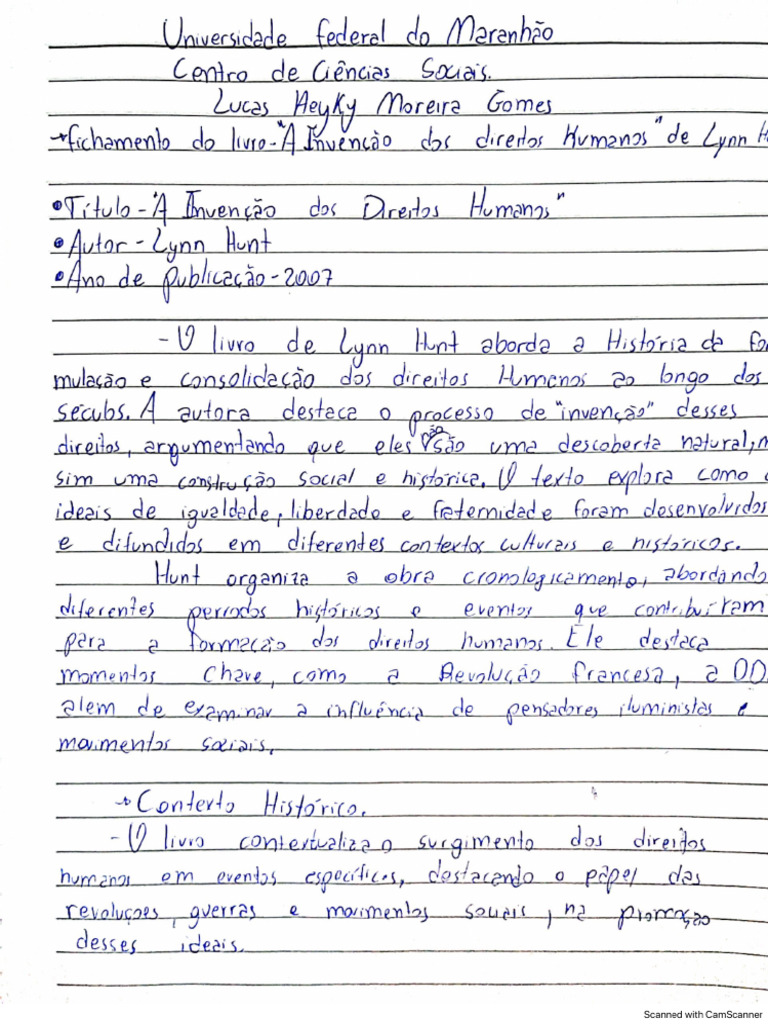 Universidade federal do Maranhão
Centro de Ciências Sociais.
Lucas Heyky Moreira Gomes
→fichamento do livro-"A Invenção dos direitos Humanos" de Lynn H
•Título-"A Invenção dos Direitos Humanos"
•Autor-Lynn Hunt
•Ano de publicação-2007
-O livro de Lynn Hunt aborda a História da for
mulação e consolidação dos direitos Humanos ao longo dos
séculos. A autora destaca o processo de "invenção" desses
direitos, argumentando que eles são uma descoberta natural, m
sim uma construção social e histórica. O texto explora como o
ideais de igualdade, liberdade e fraternidade foram desenvolvidos
e difundidos em diferentes contextos culturais e históricos.
Hunt organiza a obra cronologicamente, abordando
diferentes períodos históricos e eventos que contribuíram
para a formação dos direitos humanos. Ele destaca
momentos Chave, como a Revolução francesa, a DD
alem de examinar a influência de pensadores iluministas e
movimentos sociais.
→Contexto Histórico.
-O livro contextualiza o surgimento dos direitos
humanos em eventos específicos, destacando o papel das
revoluções, guerras e movimentos sociais, na promoção
desses ideais.
Scanned with CamScanner